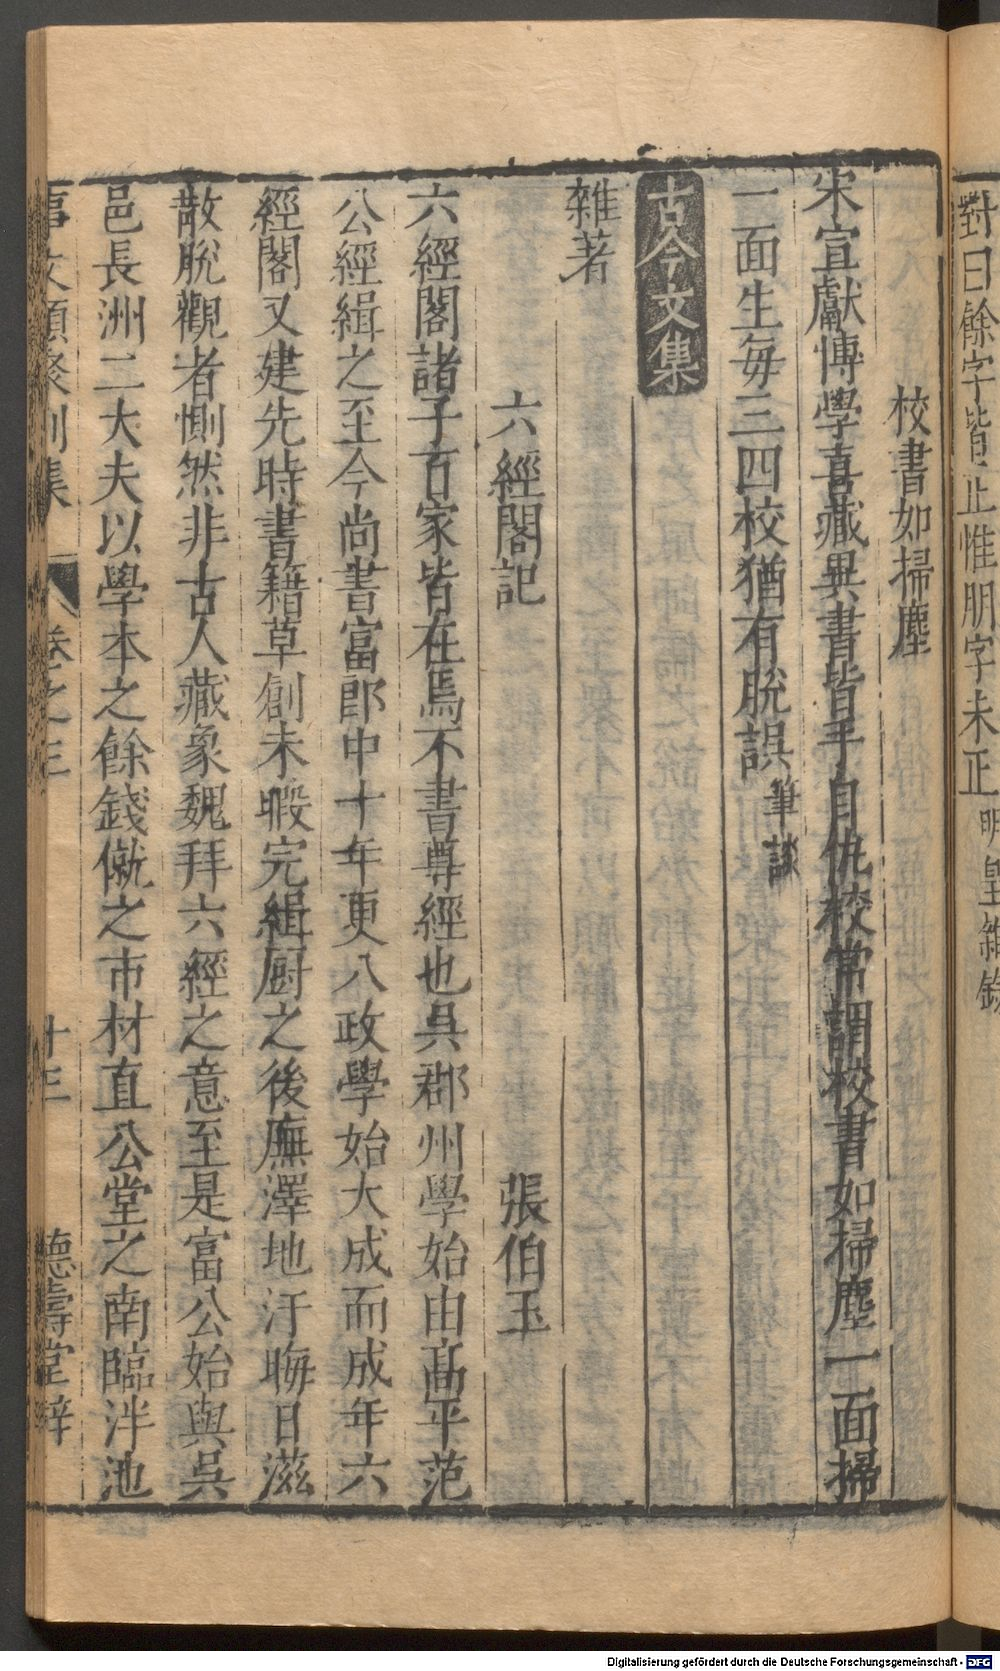 對曰餘字皆正惟朋字未正明皇雜錄
校書如掃塵
宋宣獻博學喜藏異書皆手自仇校常謂校書如掃塵一面掃
一面生每三四校猶有脫誤筆談
古今文集
雜著
六經閣記 張伯玉
六經閣諸子百家皆在焉不書尊經也吳郡州學始由高平范
公經緝之至今尚書富郎中十年更八政學始大成而成年六
經閣又建先時書籍草創未暇完緝厨之後廡澤地汙晦日滋
散脫觀者惻然非古人藏象魏拜六經之意至是富公始與吳
邑長洲二大夫以學本之餘錢僦之市材直公堂之南臨泮池
事文類聚別集 卷之三 十三 德壽堂梓
Digitalisierung gefördert durch die Deutsche Forschungsgemeinschaft - DFG